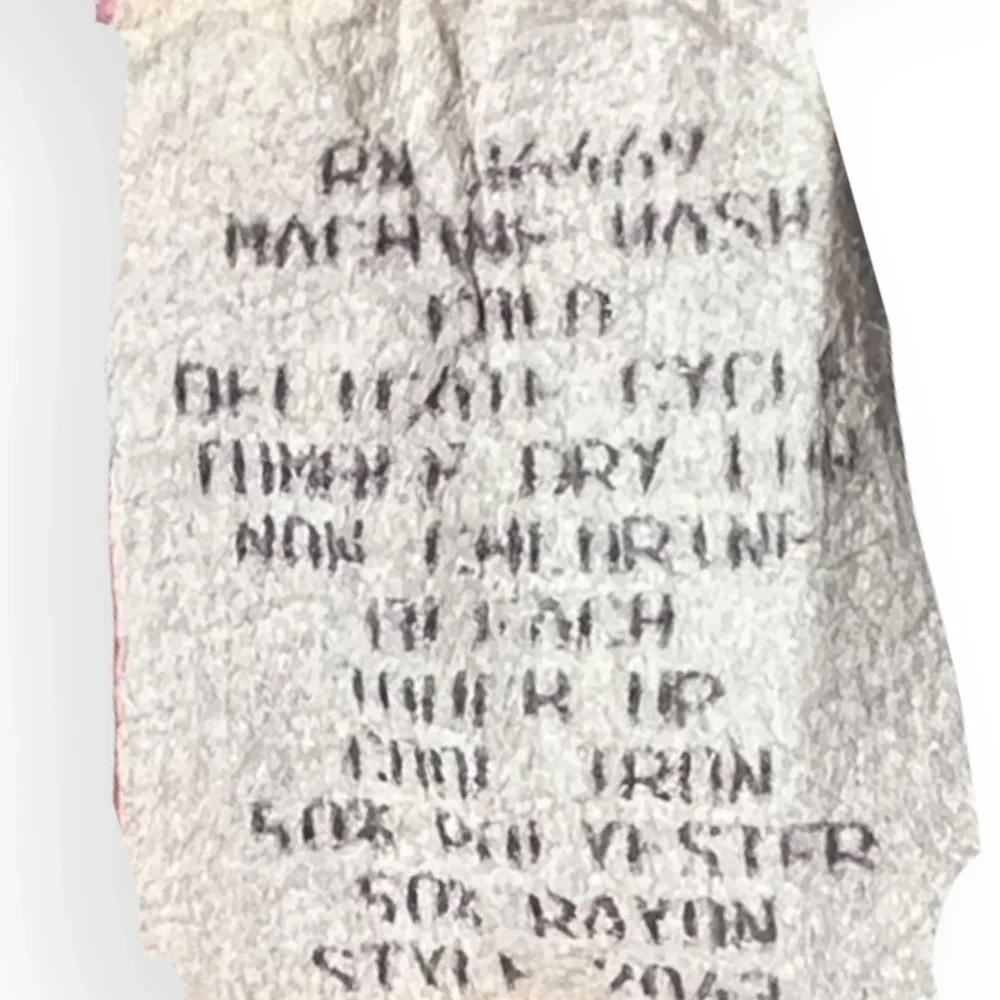 RN
MACHINE WASH
COLD
DELICATE CYCLE
TUMBLE DRY LOW
NON CHLORINE
BLEACH
UNDER UP
COOL IRON
50% POLYESTER
50% RAYON
STYLE